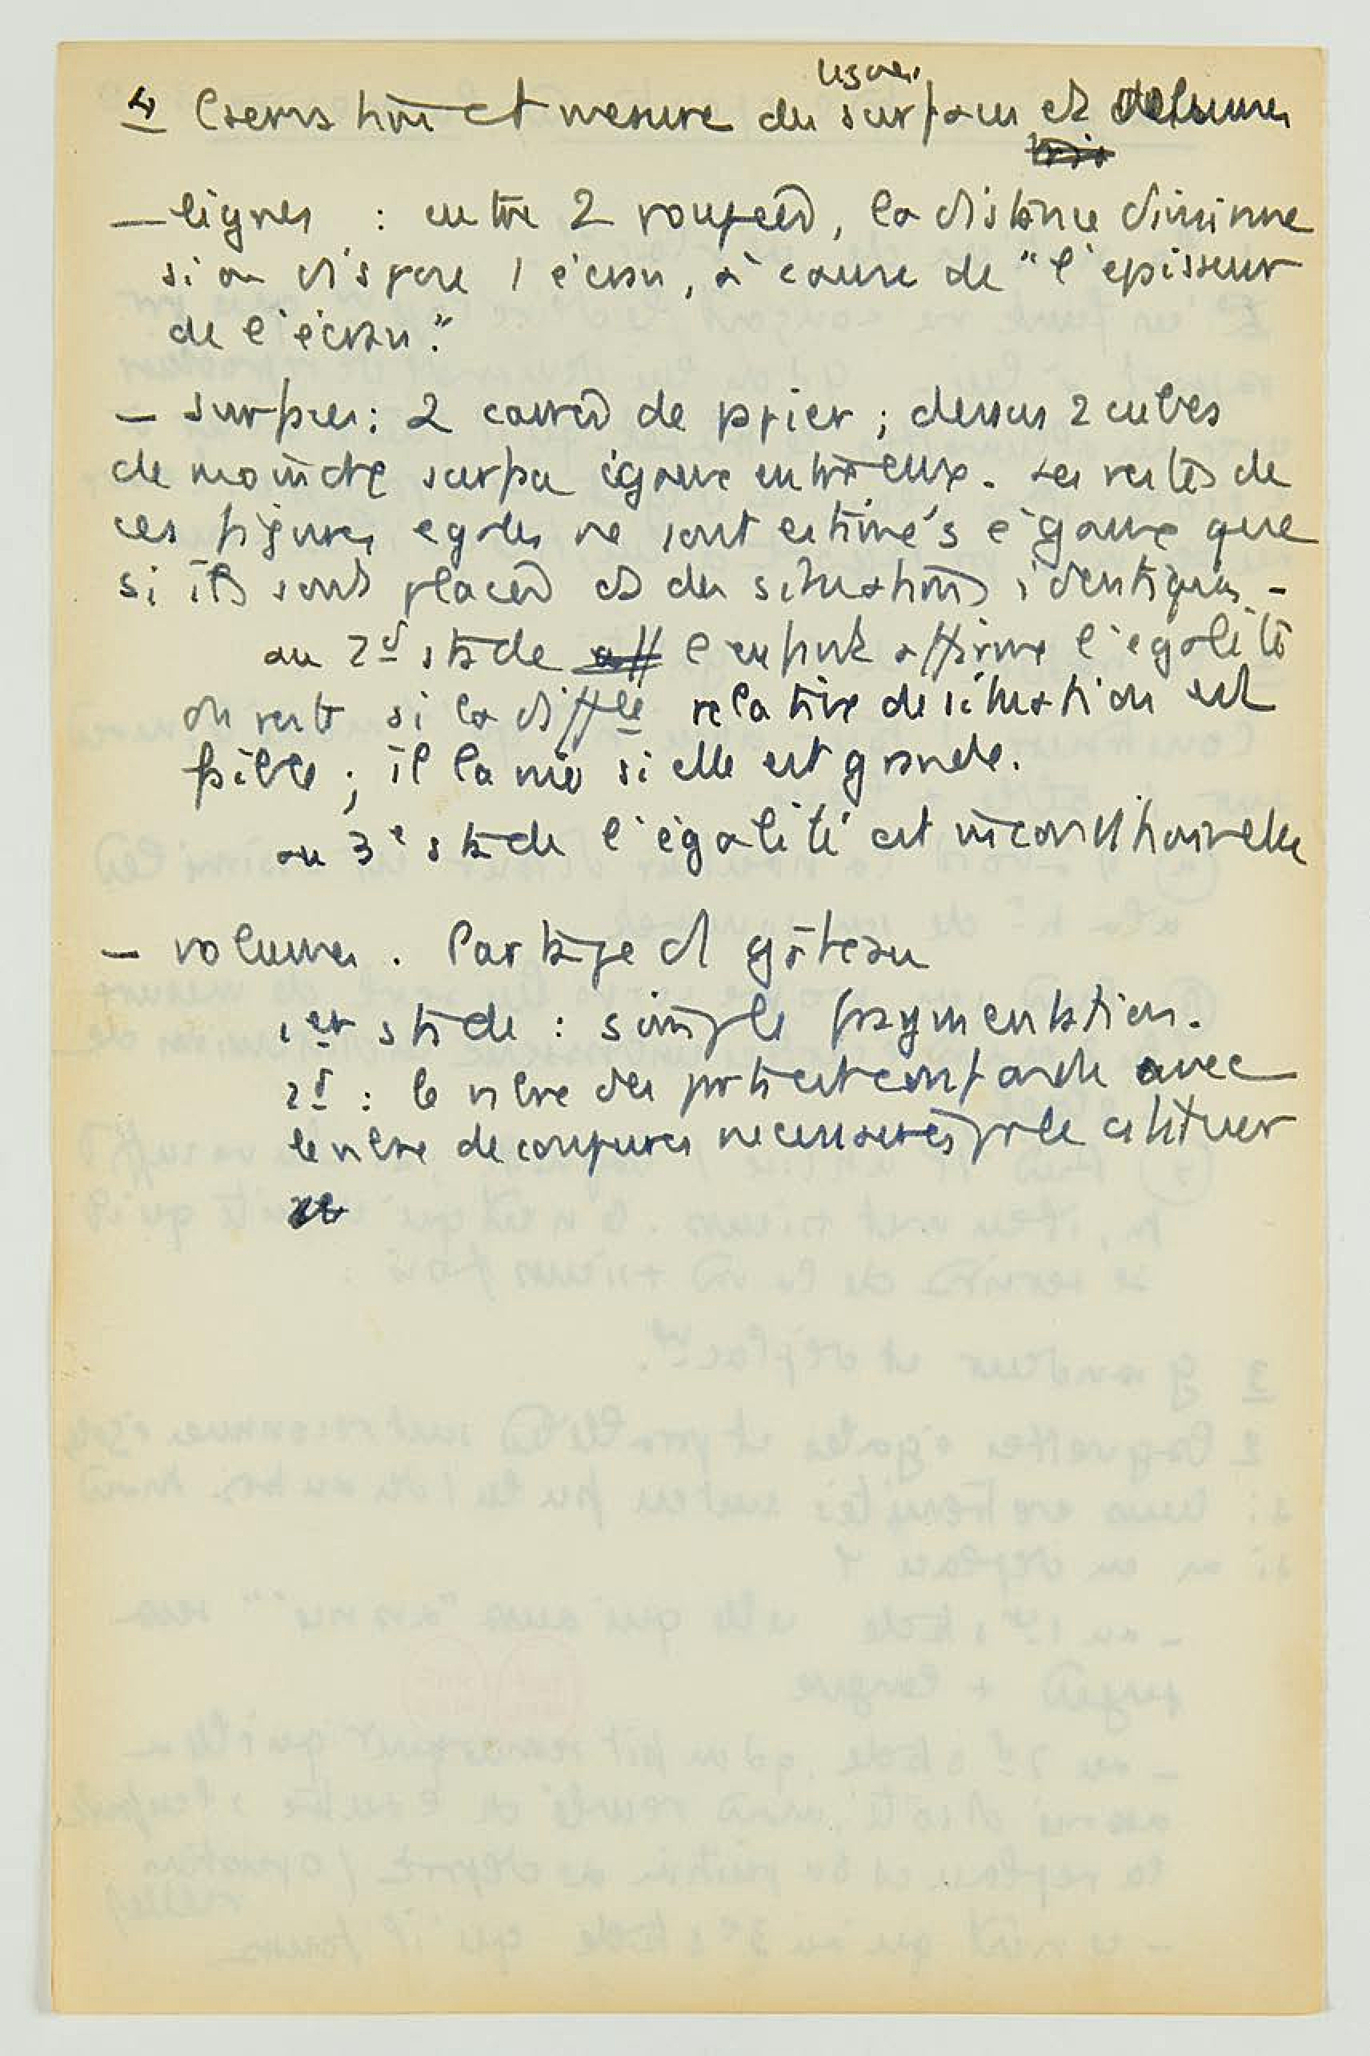 4 Conservation et mesure des lignes surfaces et volumes
— lignes : entre 2 poupées, la distance diminue
si on dispose 1 écran, à cause de "l'épaisseur
de l'écran".
— surfaces : 2 carrés de papier ; dessus 2 cubes
de moindre surface égaux entre eux. Les restes de
ces figures égales ne sont estimés égaux que
si ils sont placés ds des situations identiques -
au 2d stade l'enfant affirme l'égalité
du reste si la diffce relative de situation est
faible ; il la nie si elle est grande.
au 3e stade l'égalité est inconditionnelle
— volumes . Partage d'1 gâteau
1er stade : simple fragmentation.
2d : le nbre des parts est confondu avec
le nbre de coupures necessaires pr le